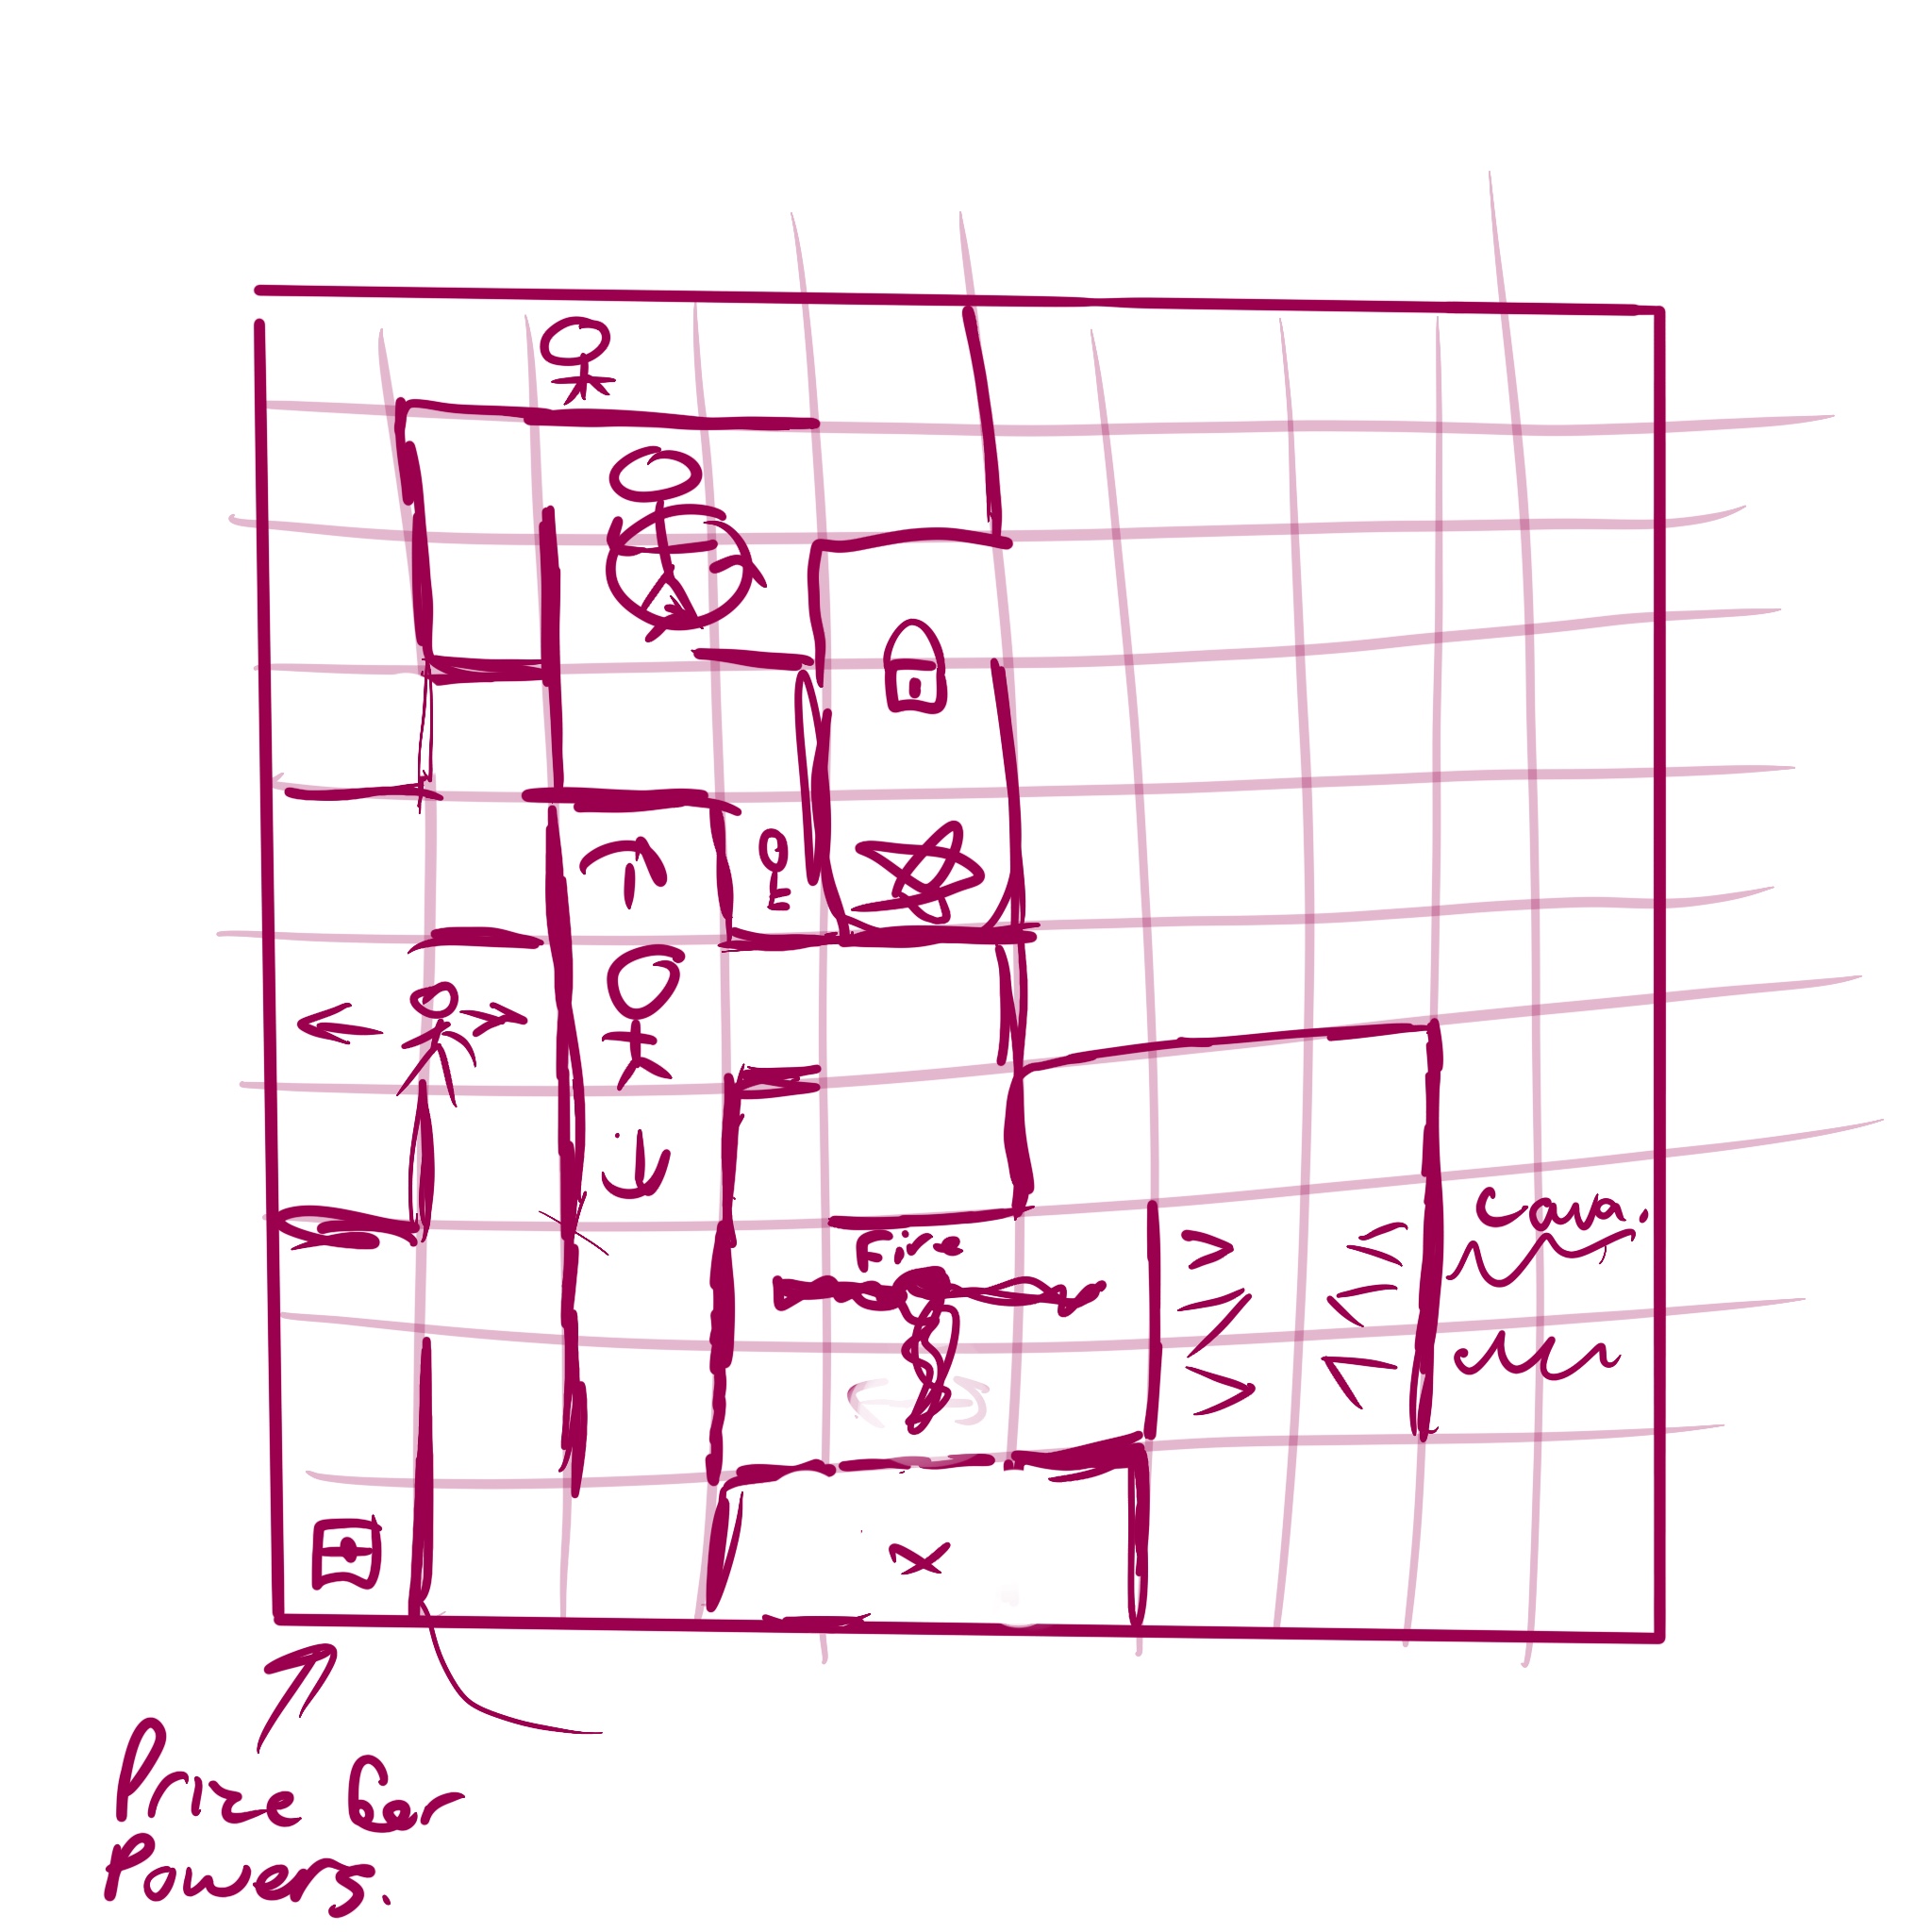 Fire
Prize for
Powers.